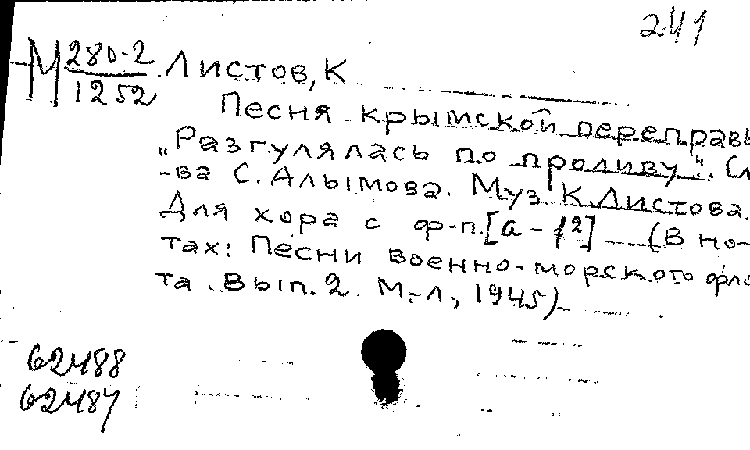 241
М 280-2 Листов, К
1252
Песня крымской переправы
„Разгулялась по проливу". Сл
-ва С. Алымова. Муз К. Листова.
Для хора с ф-п. [a - f²] (В но-
тах: Песни военно-морского фло
та. Вып. 2. М.-Л, 1945)
62488
62487